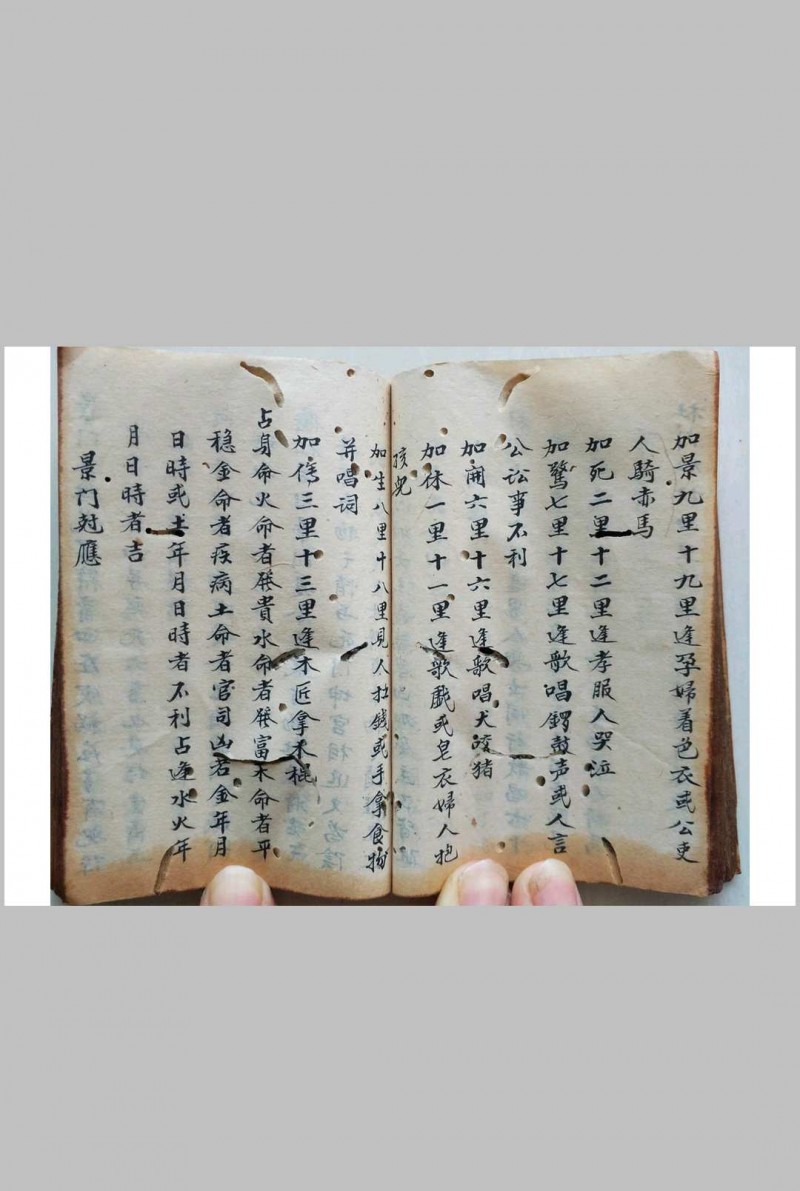 加景九里十九里逢孕婦着色衣或公吏
人騎赤馬
加死二里十二里逢孝服人哭泣
加驚七里十七里逢歌唱鑼鼓声或人言
公訟事不利
加開六里十六里逢歌唱犬咬猪
加休一里十一里逢歌戲或皂衣婦人抱
孩兒
加生八里十八里見人扛錢或手拿食物
并唱词
加傷三里十三里逢木匠拿木棍
占身命火命者發貴水命者發富木命者平
穏金命者疾病土命者官司凶若金年月
日時或土年月日時者不利占逢水火年
月日時者吉
景门尅應